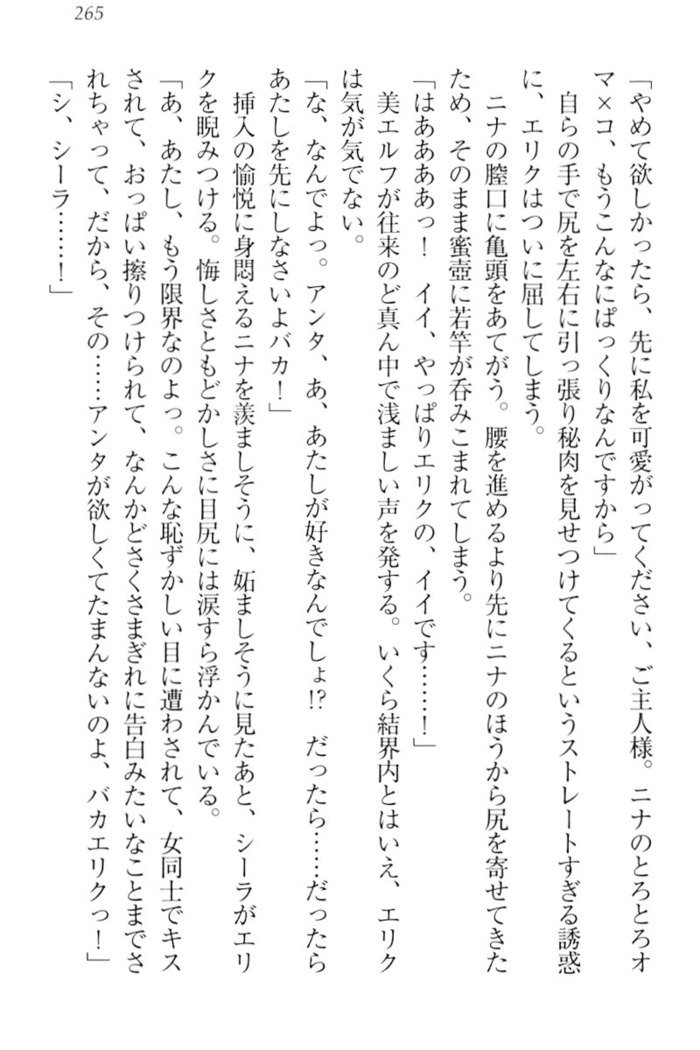 265
「やめて欲しかったら、先に私を可愛がってください、ご主人様。ニナのとろとろオ
マ×コ、もうこんなにぱっくりなんですから」
自らの手で尻を左右に引っ張り秘肉を見せつけてくるというストレートすぎる誘惑
に、エリクはついに屈してしまう。
ニナの膣口に亀頭をあてがう。腰を進めるより先にニナのほうから尻を寄せてきた
ため、そのまま蜜壺に若竿が呑みこまれてしまう。
「はああああっ！　イイ、やっぱりエリクの、イイです……！」
美エルフが往来のど真ん中で浅ましい声を発する。いくら結界内とはいえ、エリク
は気が気でない。
「な、なんでよっ。アンタ、あ、あたしが好きなんでしょ!?　だったら……だったら
あたしを先にしなさいよバカ！」
挿入の愉悦に身悶えるニナを羨ましそうに、妬ましそうに見たあと、シーラがエリ
クを睨みつける。悔しさともどかしさに目尻には涙すら浮かんでいる。
「あ、あたし、もう限界なのよっ。こんな恥ずかしい目に遭わされて、女同士でキス
されて、おっぱい擦りつけられて、なんかどさくさまぎれに告白みたいなことまでさ
れちゃって、だから、その……アンタが欲しくてたまんないのよ、バカエリクっ！」
「シ、シーラ……！」